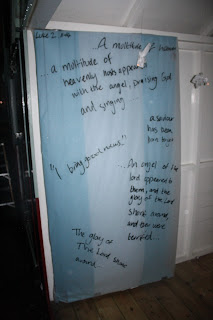 Luke 2
A multitude of
...a multitude of
heavenly hosts appeared
with the angel, praising God
and singing...
a saviour
has been
born to you
"I bring good news"
...An angel of the
lord appeared to
them, and the
glory of the Lord
shone around,
and they were
terrified...
The glory of
The Lord shone
around...